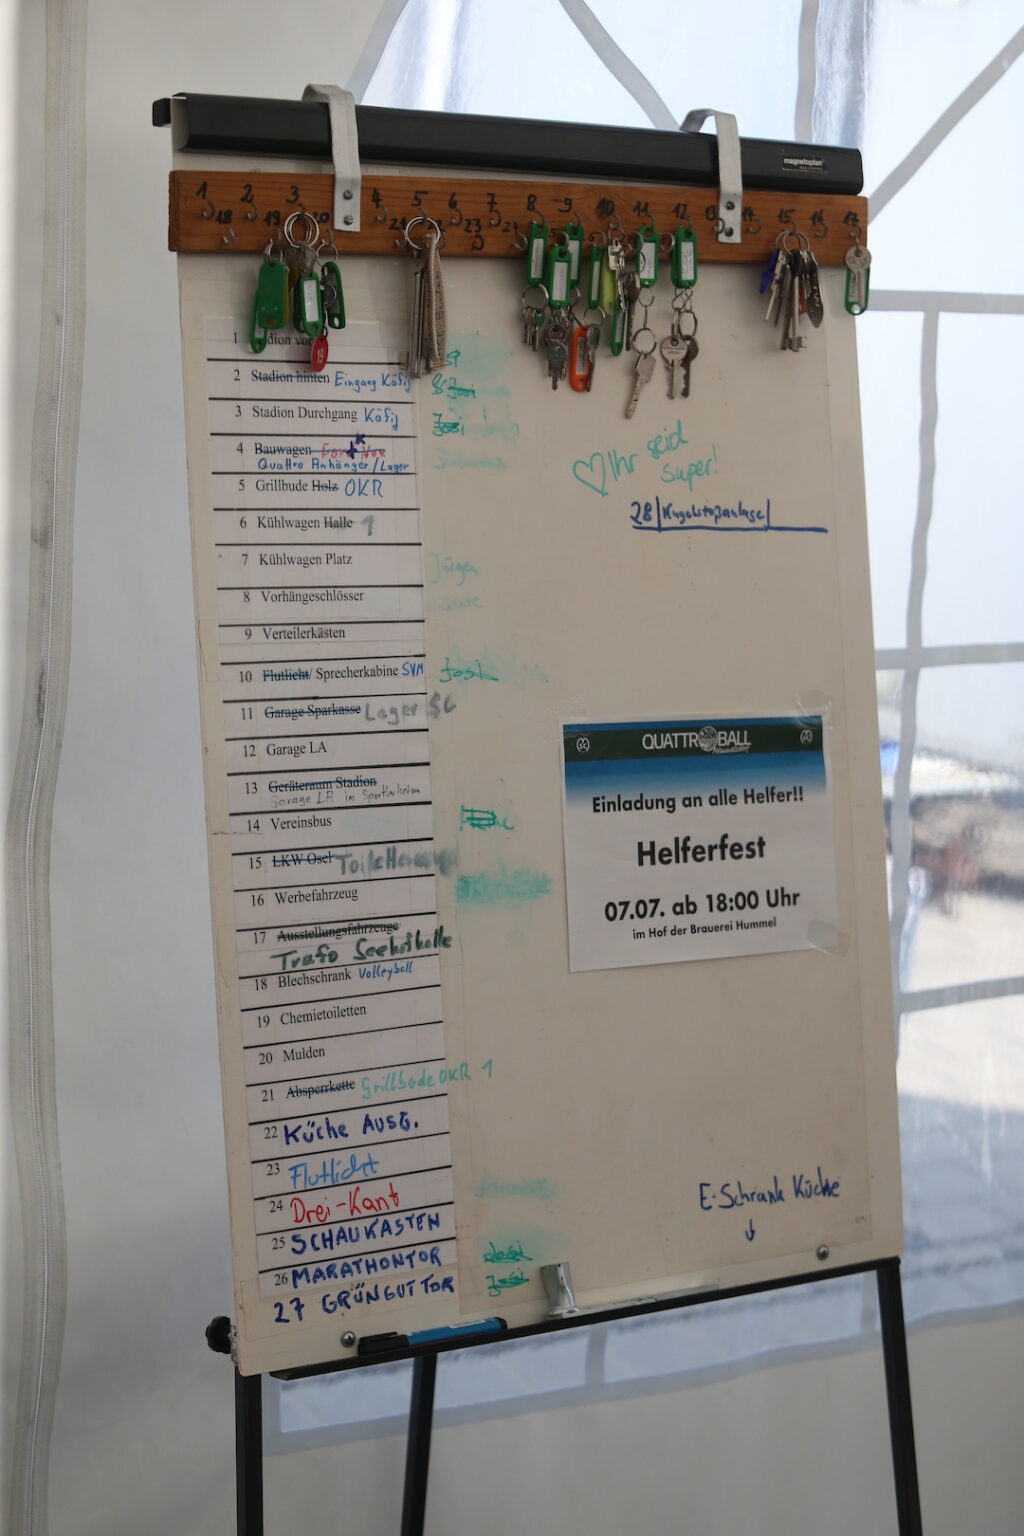 magnetoplan
1 2 3 4 5 6 7 8 9 10 11 12 13 14 15 16 17
18 19 20 21 22 23 24
19
1
2 Stadion hinten Eingang Käfig
3 Stadion Durchgang Käfig
4 Bauwagen
Quattro Anhänger/Lager
5 Grillbude Holz OKR
6 Kühlwagen Halle 1
7 Kühlwagen Platz
8 Vorhängeschlösser
9 Verteilerkästen
10 Flutlicht/ Sprecherkabine SVM
11 Garage Sparkasse Lager SC
12 Garage LA
13 Geräteraum Stadion
Garage LA im Sportlerheim
14 Vereinsbus
15 LKW Osel
16 Werbefahrzeug
17 Ausstellungsfahrzeuge
Trafo Seehofhalle
18 Blechschrank Volleyball
19 Chemietoiletten
20 Mulden
21 Absperrkette Grillbude OKR 1
22 Küche AUSG.
23 Flutlicht
24 Drei-Kant
25 SCHAUKASTEN
26 MARATHONTOR
27 GRÜNGUT TOR
Josi
Josi
Jürgen
Josi
Josi
Josi
Ihr seid
Super!
28 Kugelstoßanlage
QUATTROBALL
Einladung an alle Helfer!!
Helferfest
07.07. ab 18:00 Uhr
im Hof der Brauerei Hummel
E-Schrank Küche